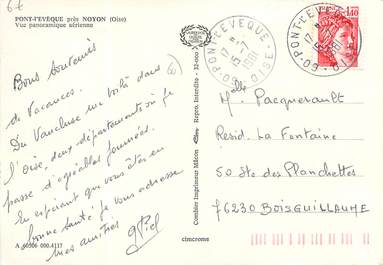 67
PONT-l'EVÊQUE près NOYON (Oise)
Vue panoramique aérienne
Bons Souvenirs
de Vacances.
Du Vaucluse me voilà dans
l'Oise, deux départements où je
passe d'agréables journées.
En espérant que vous êtes en
bonne santé je vous adresse
mes amitiés
A 60506 000.4117
Combier Imprimeur Mâcon
Repro. Interdite
cimcrome
PONT-L'EVEQUE
17 H
15-7
1981
60-OISE
1,40
Melle Pacquerault
Resid. La Fontaine
50 Ste des Planchettes
76230 BOISGUILLAUME